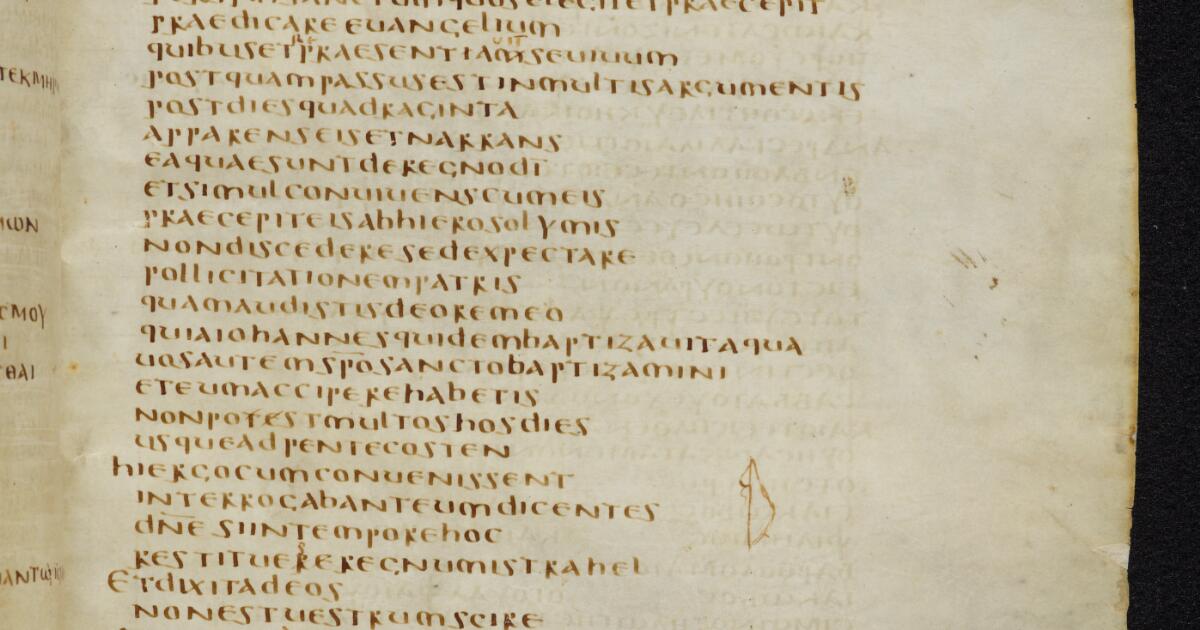 QUOSELEGITETPRAECEPIT
PRAEDICAREEUANGELIUM
QUIBUSETPRAESENTIAMSEUIUUM
POSTQUAMPASSUSESTINMULTISARGUMENTIS
POSTDIESQUADRAGINTA
APPARENSEISETNARRANS
EAQUAESUNTDEREGNOD̅I̅
ETSIMULCONUIUENSCUMEIS
PRAECEPITEISABHIEROSOLYMIS
NONDISCEDERESEDEXPECTARE
POLLICITATIONEMPATRIS
QUAMAUDISTISDEOREMEO
QUIAIOHANNESQUIDEMBAPTIZAUITAQUA
UOSAUTEMS̅P̅O̅SANCTOBAPTIZAMINI
ETEUMACCIPEREHABETIS
NONPOTESTMULTOSHOSDIES
USQUEADPENTECOSTEN
HIERGOCUMCONUENISSENT
INTERROGABANTEUMDICENTES
D̅N̅E̅SIINTEMPOREHOC
RESTITUEREREGNUMISTRAHEL
ETDIXITADEOS
NONESTUESTRUMSCIRE